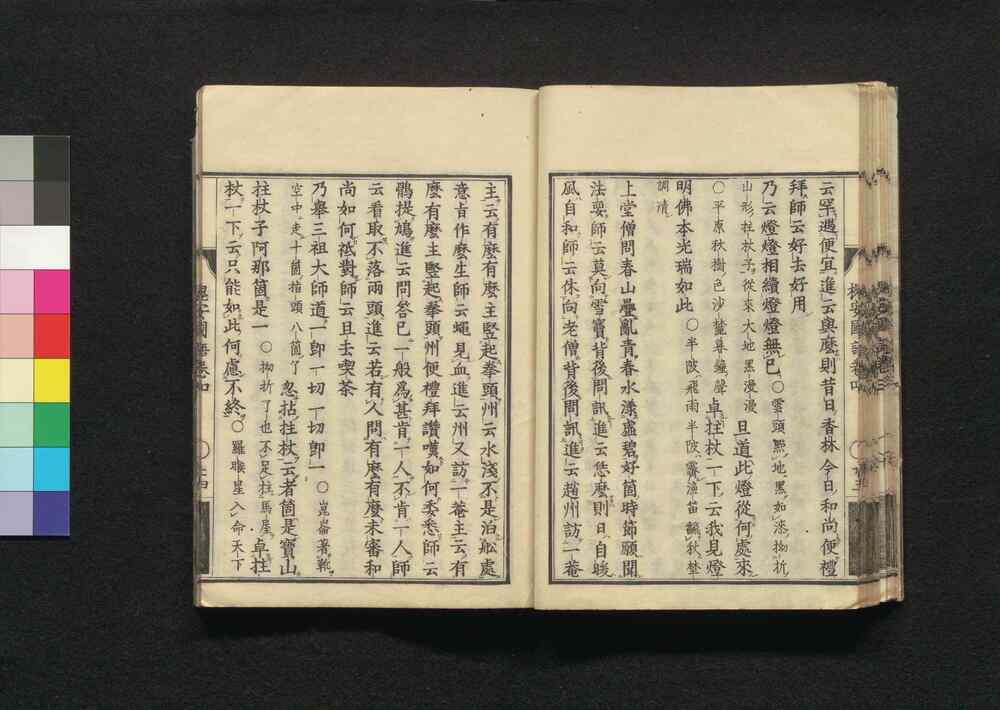 云罕遇便宜進云與麼則昔日香林今日和尚便禮
拜師云好去好用
乃云燈燈相續燈燈無已○雪頭點地黑如漆拗折
山形拄杖子從來大地黑漫漫 且道此燈從何處來
○平原秋樹色沙麓暮鐘聲 卓拄杖一下云我見燈
明佛本光瑞如此○半陂飛雨半陂霽漁笛
調清
上堂僧問春山疊亂青春水漾虛碧好箇時節願聞
法要師云莫向雪竇背後問訊進云恁麼則日自暖
風自和師云休向老僧背後問訊進云趙州訪一菴
主云有麼有麼主竪起拳頭州云水淺不是泊舩處
意旨作麼生師云蠅見血進云州又訪一菴主云有
麼有麼主竪起拳頭州便禮拜讚嘆如何委悉師云
鶻提鳩進云問答已一般爲甚肯一人不肯一人師
云看取不落兩頭進云若有人問有麼有麼未審和
尚如何祗對師云且去喫茶
乃舉三祖大師道一卽一切一切卽一○崑崙著靴
空中走十箇指頭八箇了 忽拈拄杖云者箇是寶山
拄杖子阿那箇是一○拗折了也不足拄馬屋 卓拄
杖一下云只能如此何慮不終○羅睺星入命天下